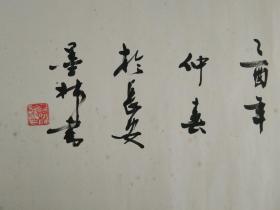 乙酉年
仲春
於長安
墨林書